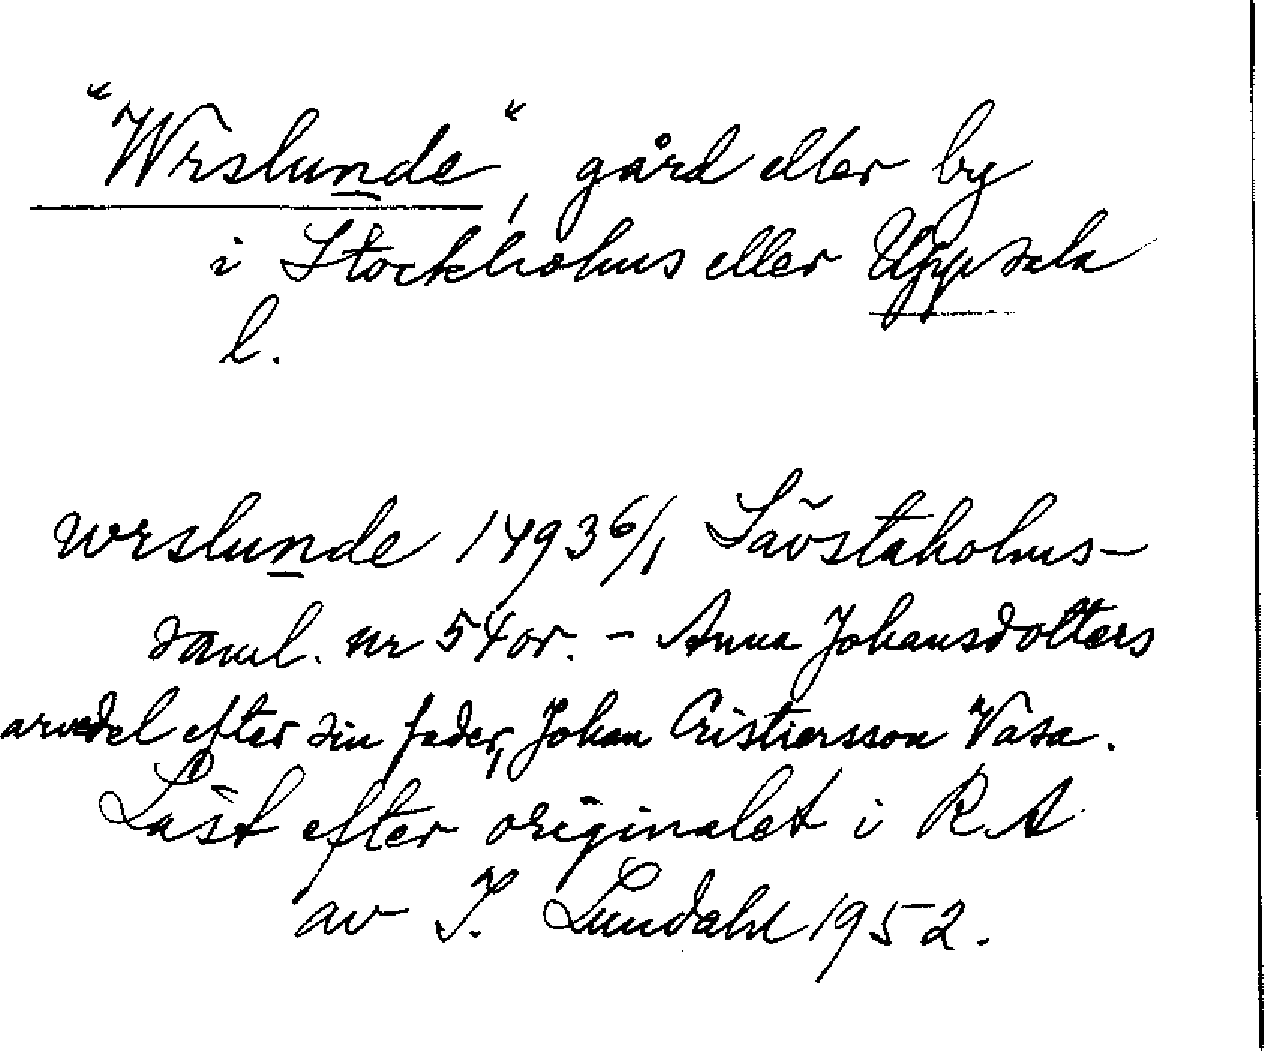 "Wrslunde", gård eller by
i Stockholms eller Uppsala
l.
wrslunde 1493 6/1 Sävstaholms-
saml. nr 54 or. - Anna Johansdotters
arvedel efter sin fader, Johan Cristiersson Vasa.
Läst efter originalet i RA
av I. Lundahl 1952.